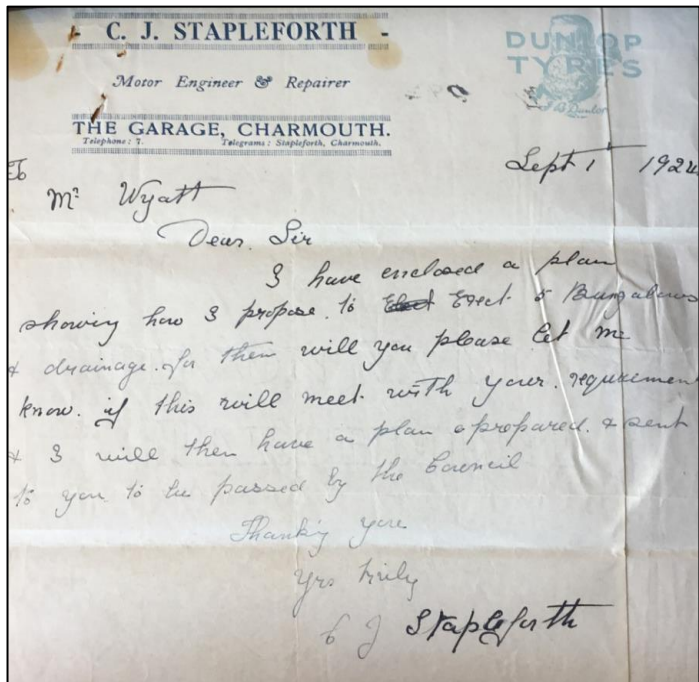 - C. J. STAPLEFORTH -
DUNLOP
TYRES
Motor Engineer & Repairer
J B Dunlop
THE GARAGE, CHARMOUTH.
Telephone: 7. Telegrams: Stapleforth, Charmouth.
Sept 1 192
To
Mr Wyatt
Dear Sir
I have enclosed a plan
showing how I propose to Erect 5 Bungalows
& drainage for them will you please let me
know if this will meet with your requirement
& I will then have a plan prepared & sent
to you to be passed by the Council
Thankg you
Yrs truly
C J Stapleforth